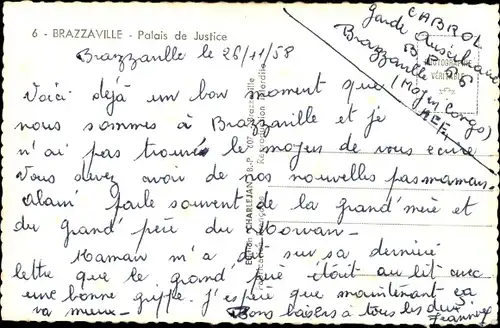 6 - BRAZZAVILLE - Palais de Justice
CABROL
Garde
B.P. 56
Brazzaville
(Moyen Congo)
A.E.F.
PHOTOGRAPHIE
VÉRITABLE
Brazzaville le 26/11/58
Voici déjà un bon moment que
nous sommes à Brazzaville et je
n'ai pas trouvé le moyen de vous écrire
Vous devez avoir de nos nouvelles par maman.
Alain parle souvent de la grand'mère et
du grand'père du Morvan.
Maman m'a dit sur sa dernière
lettre que le grand'père était au lit avec
une bonne grippe. J'espère que maintenant ça
va mieux - Bons baisers à tous les deux
Jeannine
Edition CHARLEJAN B.P. 107 Brazzaville
Reproduction Interdite